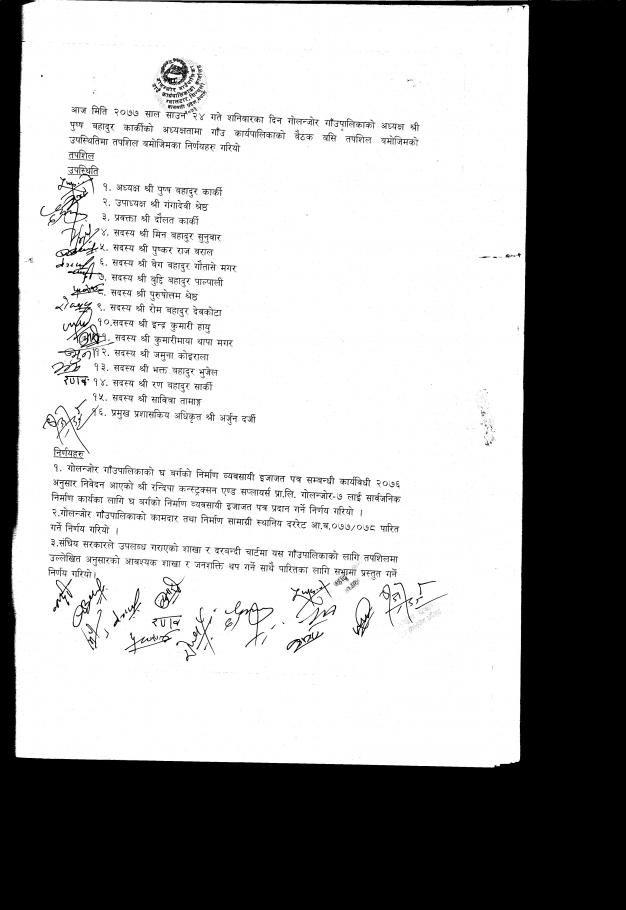 आज मिति २०७७ साल साउन २४ गते शनिबारका दिन गोलन्जोर गाँउपालिकाको अध्यक्ष श्री
पुष्प बहादुर कार्कीको अध्यक्षतामा गाँउ कार्यपालिकाको बैठक बसि तपशिल बमोजिमको
उपस्थितिमा तपशिल बमोजिमका निर्णयहरु गरियो
तपशिल
उपस्थिति
१. अध्यक्ष श्री पुष्प बहादुर कार्की
२. उपाध्यक्ष श्री गंगादेवी श्रेष्ठ
३. प्रवक्ता श्री दौलत कार्की
४. सदस्य श्री मिन बहादुर सुनुवार
५. सदस्य श्री पुष्कर राज बराल
६. सदस्य श्री वेग बहादुर गौतासे मगर
७. सदस्य श्री वुद्दि बहादुर पाल्पाली
८. सदस्य श्री पुरुषोत्तम श्रेष्ठ
९. सदस्य श्री रोम बहादुर देवकोटा
१०.सदस्य श्री इन्द्र कुमारी हायु
११. सदस्य श्री कुमारीमाया थापा मगर
१२. सदस्य श्री जमुना कोइराला
१३. सदस्य श्री भक्त बहादुर भुजेल
१४. सदस्य श्री रण बहादुर सार्की
१५. सदस्य श्री सावित्रा तामाङ्ग
१६. प्रमुख प्रशासकिय अधिकृत श्री अर्जुन दर्जी
निर्णयहरु
१. गोलन्जोर गाँउपालिकाको घ बर्गको निर्माण व्यवसायी इजाजत पत्र सम्बन्धी कार्यविधी २०७६
अनुसार निवेदन आएको श्री रन्दिपा कन्स्ट्रक्सन एण्ड सप्लायर्स प्रा.लि. गोलन्जोर-७ लाई सार्वजनिक
निर्माण कार्यका लागि घ बर्गको निर्माण व्यवसायी इजाजत पत्र प्रदान गर्ने निर्णय गरियो ।
२.गोलन्जोर गाँउपालिकाको कामदार तथा निर्माण सामाग्री स्थानिय दररेट आ.ब.०७७/०७८ पारित
गर्ने निर्णय गरियो ।
३.संघिय सरकारले उपलब्ध गराएको शाखा र दरबन्दी चार्टमा यस गाँउपालिकाको लागि तपशिलमा
उल्लेखित अनुसारको आवश्यक शाखा र जनशक्ति थप गर्ने साथै पारितका लागि सभामा प्रस्तुत गर्ने
निर्णय गरियो।